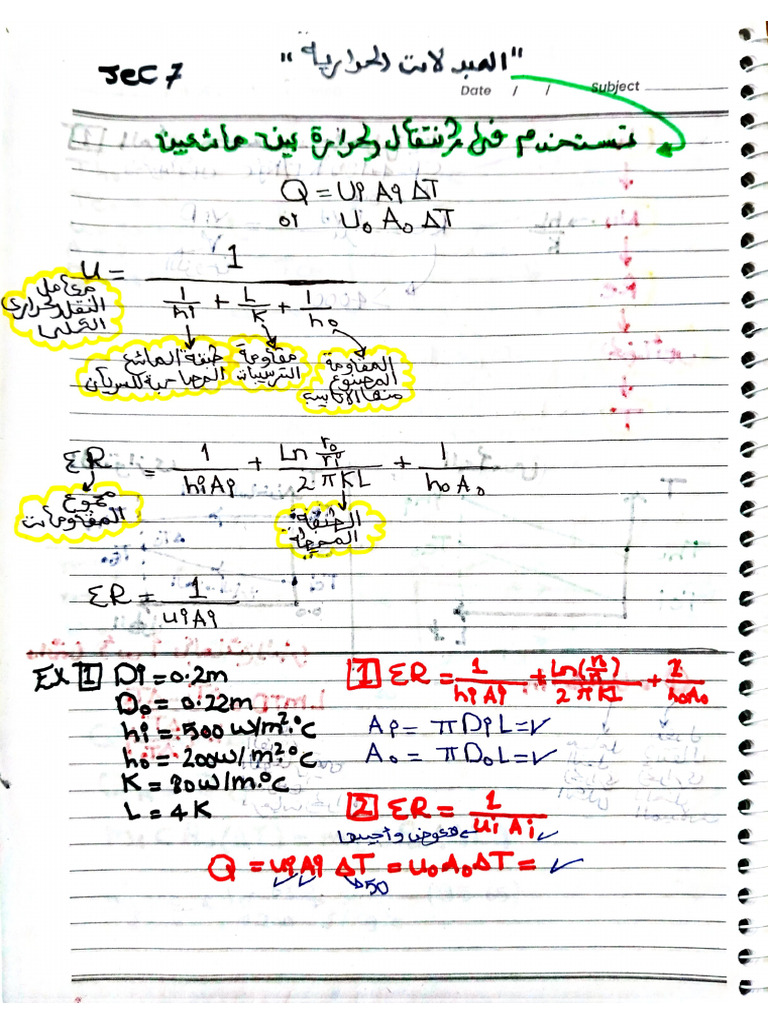 Sec 7
"المبدلات الحرارية"
Date / / Subject
تستخدم في انتقال الحرارة بين مائعين
Q = Ui Ai ΔT
or Uo Ao ΔT
U = 1 / (1/hi + L/K + 1/ho)
معامل
النقل الحراري
الكلي
طبقة المائع
المصاحبة للسريان
مقاومة
الترسبات
المقاومة
ΣR = 1/(hi Ai) + Ln(ro/ri)/(2πKL) + 1/(ho Ao)
مجموع
المقاومات
ΣR = 1/(Ui Ai)
EX 1 Di = 0.2m
Do = 0.22m
hi = 500 W/m².°C
ho = 200 W/m².°C
K = 80 W/m.°C
L = 4 K
1 ΣR = 1/(hi Ai) + Ln()/(2πKL) + 1/(ho Ao)
Ai = π Di L = ✓
Ao = π Do L = ✓
2 ΣR = 1/(Ui Ai)
Q = Ui Ai ΔT = Uo Ao ΔT = ✓
50